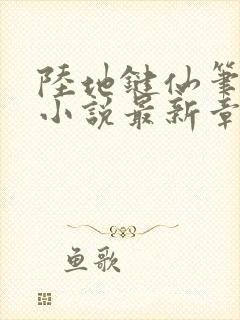 陸地鍵仙筆
小說最新章
鱼歌